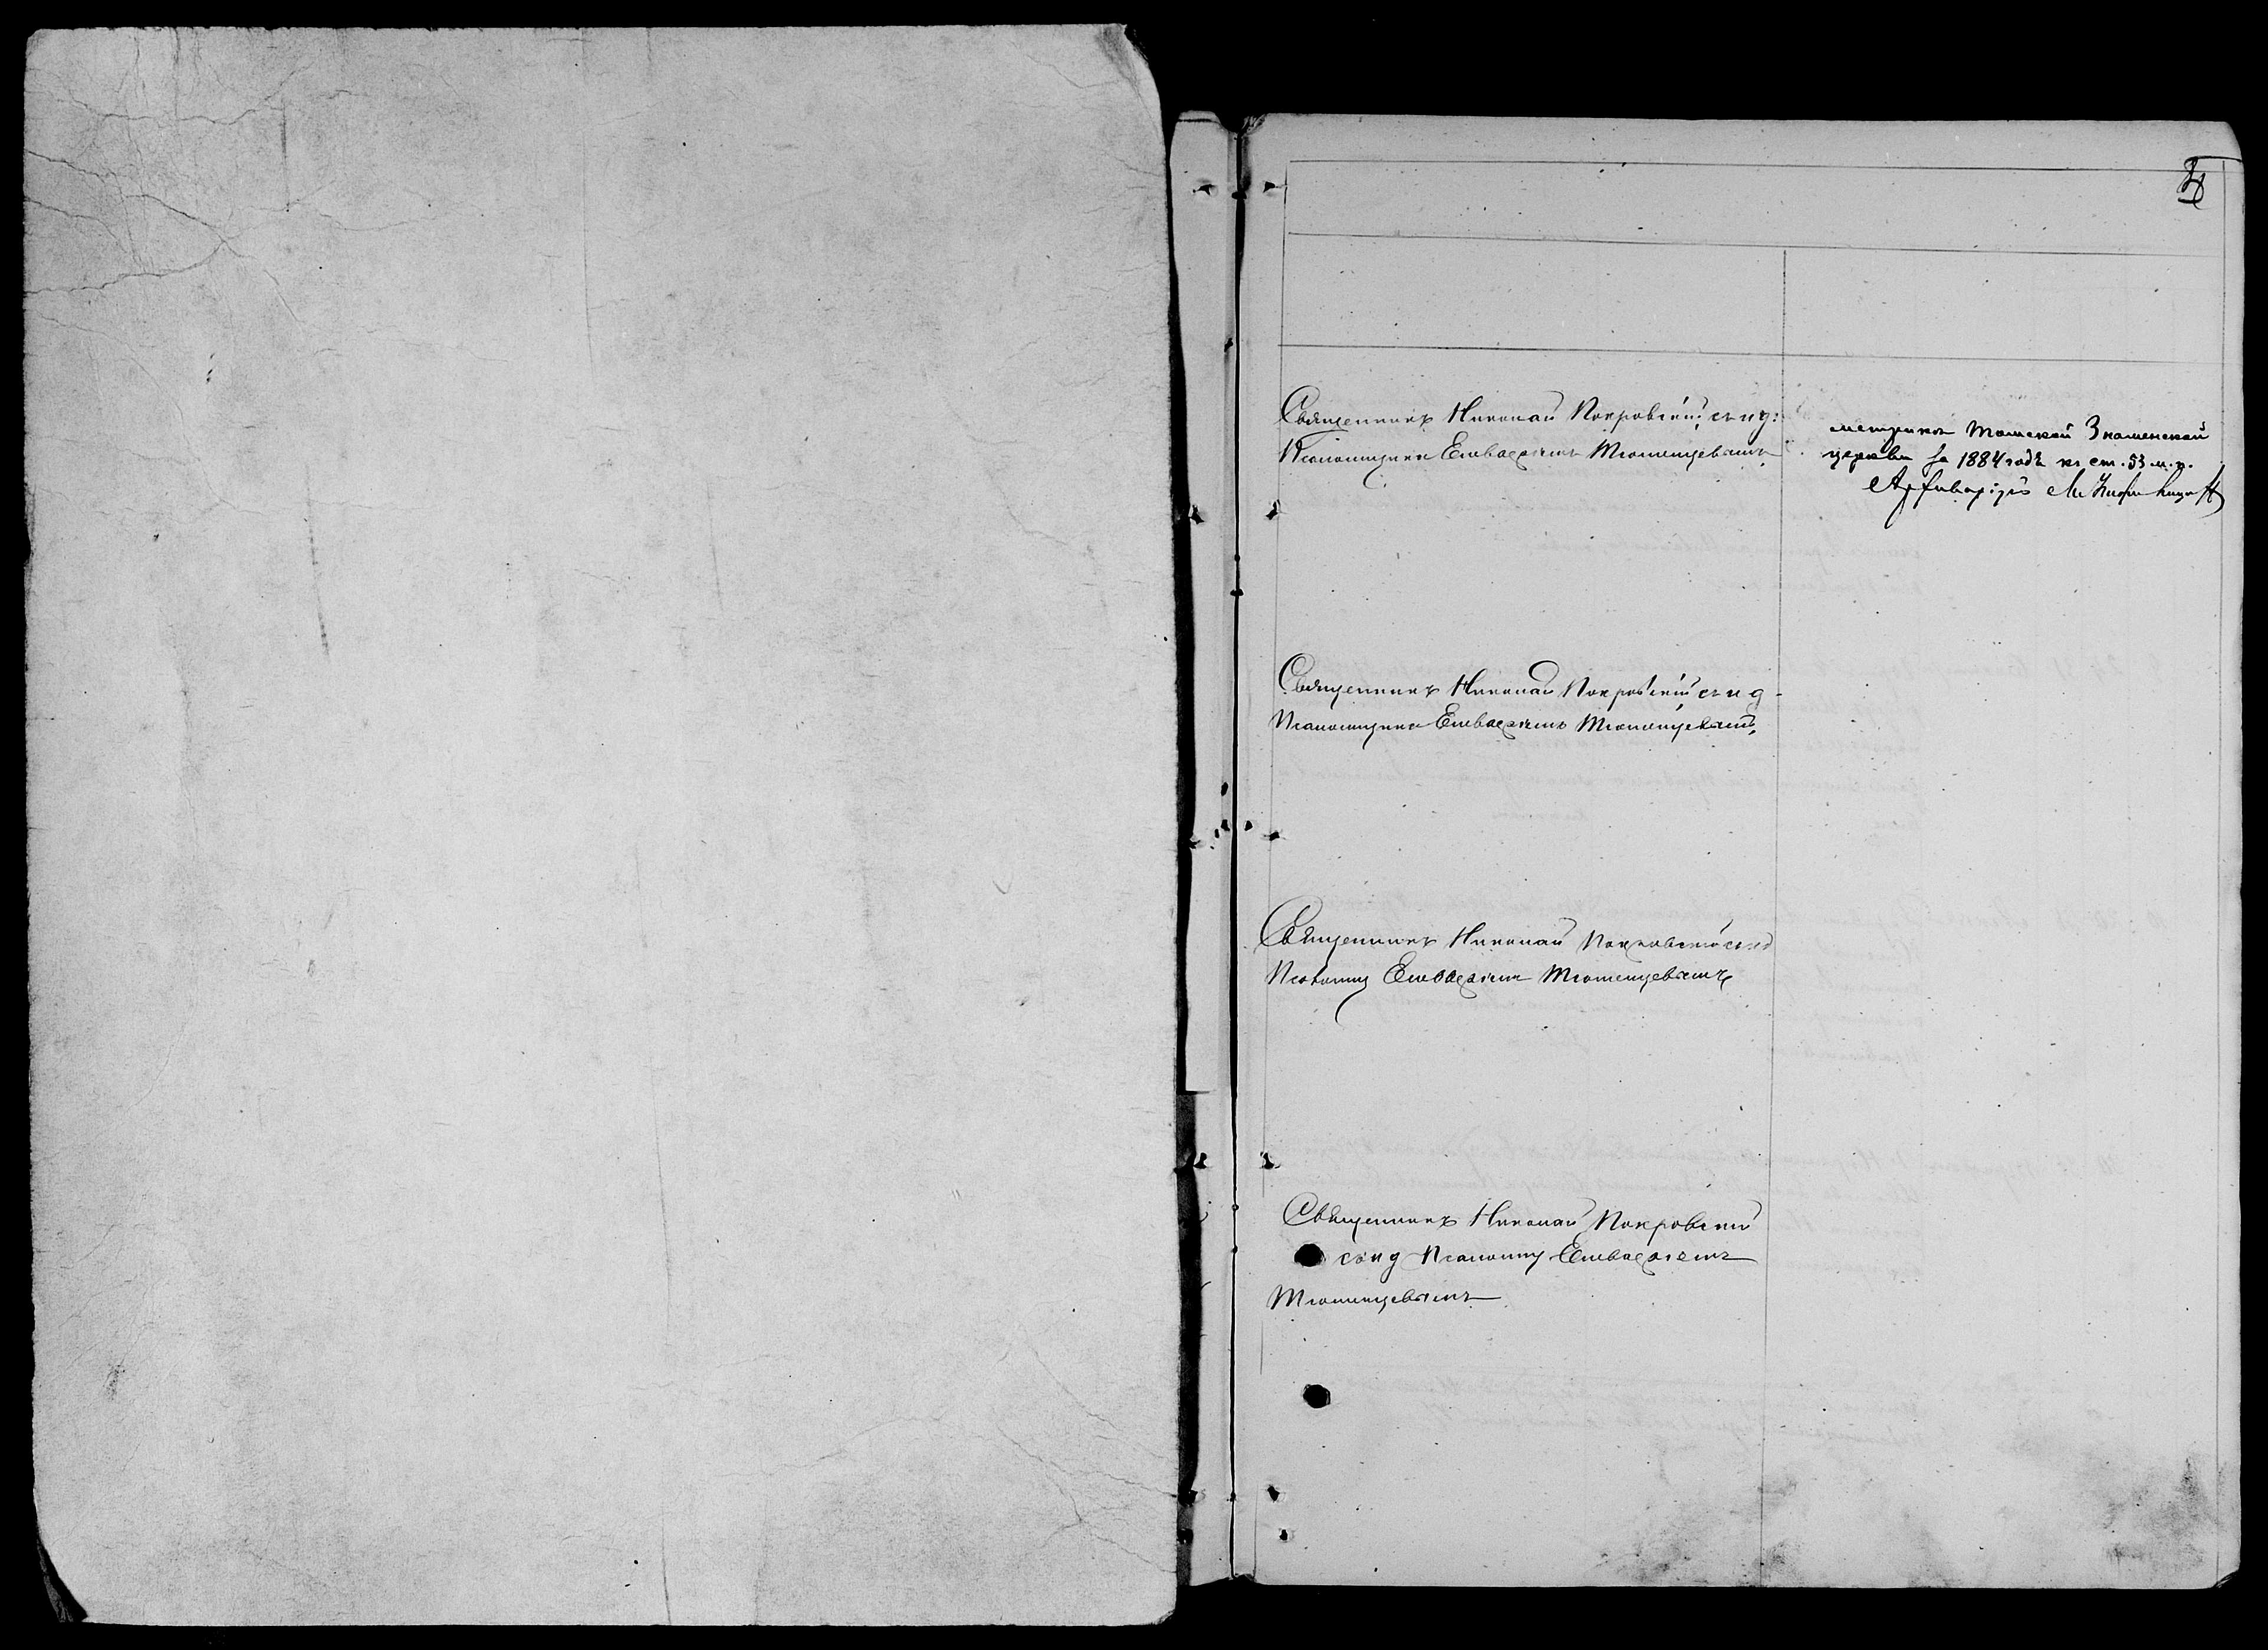 Священникъ Николай Покровскій; съ и д:
Псаломщика Елевферіемъ Тюменцевымъ
метрикѣ Томской Знаменской
церкви за 1884 годъ къ ст. 53 м. п.
Архиваріусъ
Священникъ Николай Покровскій, съ и д
Псаломщика Елевферіемъ Тюменцевымъ,
Священникъ Николай Покровскій съ и д
Псаломщ Елевферіемъ Тюменцевымъ
Священникъ Николай Покровскій
съ и д Псаломщ Елевферіемъ
Тюменцевымъ